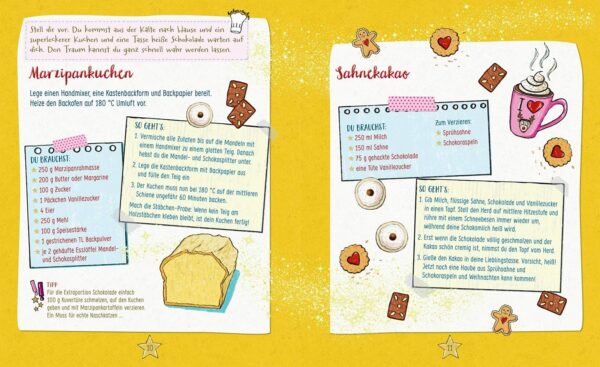 Stell dir vor, Du kommst aus der Kälte nach Hause und ein
superleckerer Kuchen und eine Tasse heiße Schokolade warten auf
dich. Den Traum kannst du ganz schnell wahr werden lassen.
Marzipankuchen
Lege einen Handmixer, eine Kastenbackform und Backpapier bereit.
Heize den Backofen auf 180 °C Umluft vor.
DU BRAUCHST:
250 g Marzipanrohmasse
200 g Butter oder Margarine
100 g Zucker
1 Päckchen Vanillezucker
4 Eier
250 g Mehl
100 g Speisestärke
1 gestrichenen TL Backpulver
je 2 gehäufte Esslöffel Mandel-
und Schokosplitter
SO GEHT'S:
1. Vermische alle Zutaten bis auf die Mandeln mit
einem Handmixer zu einem glatten Teig. Danach
hebst du die Mandel- und Schokosplitter unter.
2. Lege die Kastenbackform mit Backpapier aus
und fülle den Teig ein
3. Der Kuchen muss nun bei 180 °C auf der mittleren
Schiene ungefähr 60 Minuten backen.
Mach die Stäbchen-Probe: Wenn kein Teig am
Holzstäbchen kleben bleibt, ist dein Kuchen fertig!
TIPP
Für die Extraportion Schokolade einfach
100 g Kuvertüre schmelzen, auf den Kuchen
geben und mit Marzipankartoffeln verzieren.
Ein Muss für echte Naschkatzen ...
10
Sahnekakao
DU BRAUCHST:
250 ml Milch
150 ml Sahne
75 g gehackte Schokolade
eine Tüte Vanillezucker
Zum Verzieren:
Sprühsahne
Schokoraspeln
SO GEHT'S:
1. Gib Milch, flüssige Sahne, Schokolade und Vanillezucker
in einen Topf. Stell den Herd auf mittlere Hitzestufe und
rühre mit einem Schneebesen immer wieder um,
während deine Schokomilch heiß wird.
2. Erst wenn die Schokolade völlig geschmolzen und der
Kakao schön cremig ist, nimmst du den Topf vom Herd.
3. Gieße den Kakao in deine Lieblingstasse. Vorsicht, heiß!
Jetzt noch eine Haube aus Sprühsahne und
Schokoraspeln und Weihnachten kann kommen!
11